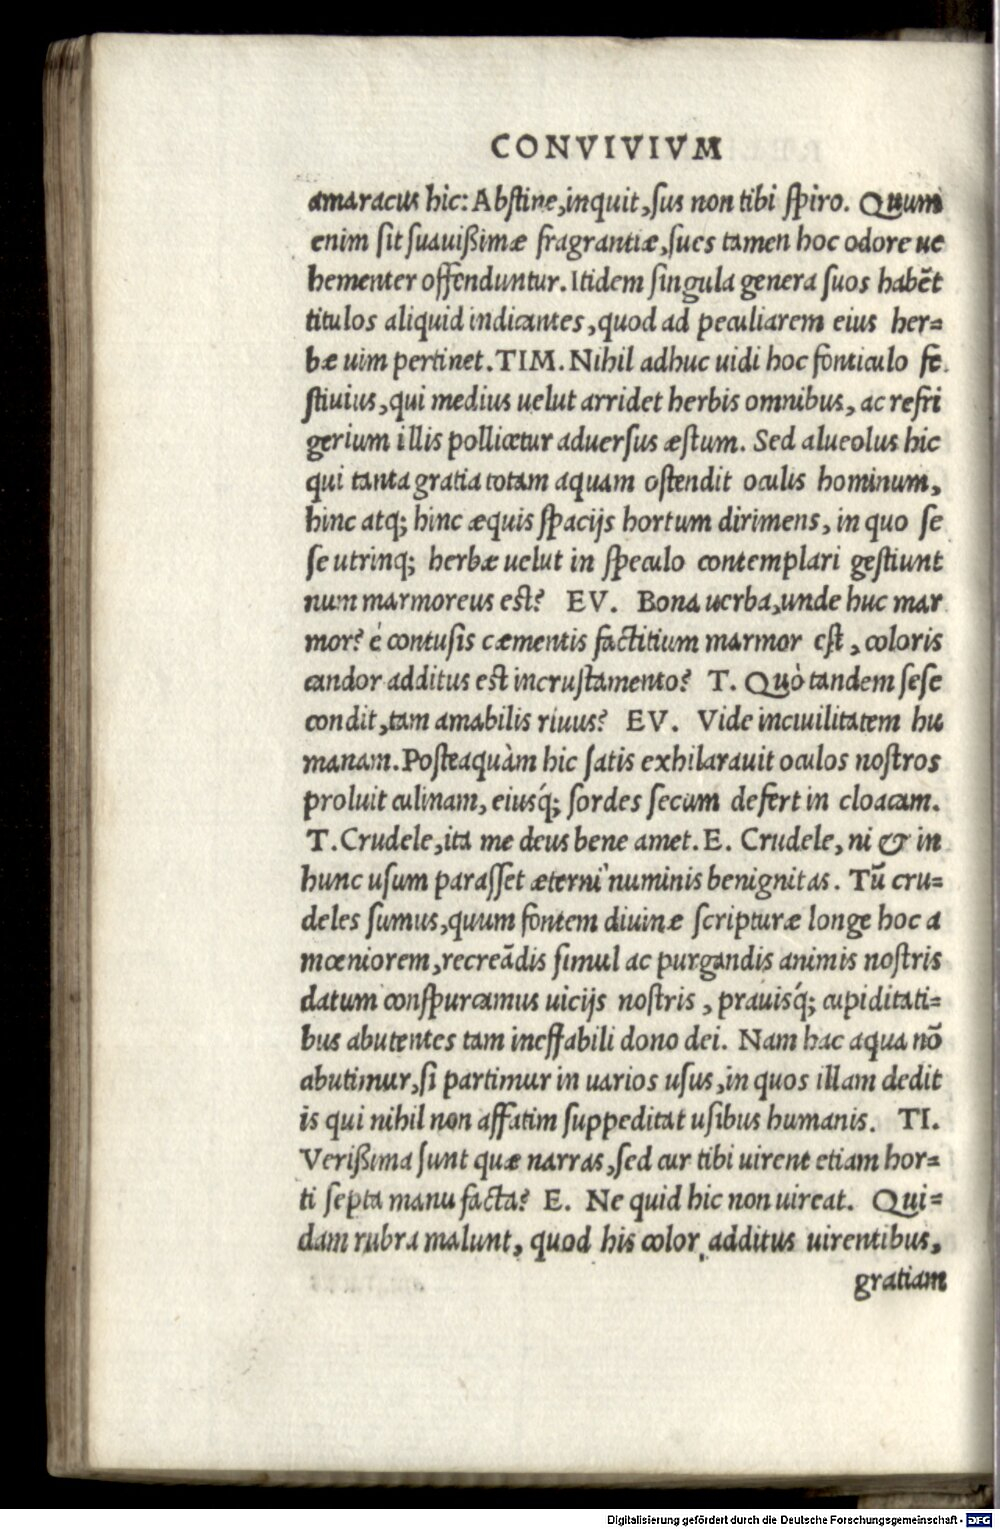 CONVIVIVM
amaracus hic: Abstine, inquit, sus non tibi spiro. Quum
enim sit suauißimæ fragrantiæ, sues tamen hoc odore ue
hementer offenduntur. Itidem singula genera suos habẽt
titulos aliquid indicantes, quod ad peculiarem eius her=
bæ uim pertinet. TIM. Nihil adhuc uidi hoc fonticulo fe
stiuius, qui medius uelut arridet herbis omnibus, ac refri
gerium illis pollicetur aduersus æstum. Sed alueolus hic
qui tanta gratia totam aquam ostendit oculis hominum,
hinc atq; hinc æquis spacijs hortum dirimens, in quo se
se utrinq; herbæ uelut in speculo contemplari gestiunt
num marmoreus est? EV. Bona uerba, unde huc mar
mor? è contusis cæmentis factitium marmor est, coloris
candor additus est incrustamento? T. Quò tandem sese
condit, tam amabilis riuus? EV. Vide inciuilitatem hu
manam. Posteaquàm hic satis exhilarauit oculos nostros
proluit culinam, eiusq́; sordes secum defert in cloacam.
T. Crudele, ita me deus bene amet. E. Crudele, ni & in
hunc usum parasset æterni numinis benignitas. Tũ cru=
deles sumus, quum fontem diuinæ scripturæ longe hoc a
mœniorem, recreãdis simul ac purgandis animis nostris
datum conspurcamus uicijs nostris, prauisq́; cupiditati=
bus abutentes tam ineffabili dono dei. Nam hac aqua nõ
abutimur, si partimur in uarios usus, in quos illam dedit
is qui nihil non affatim suppeditat usibus humanis. TI.
Verißima sunt quæ narras, sed cur tibi uirent etiam hor=
ti septa manu facta? E. Ne quid hic non uireat. Qui=
dam rubra malunt, quod his color additus uirentibus,
gratiam
Digitalisierung gefördert durch die Deutsche Forschungsgemeinschaft - DFG